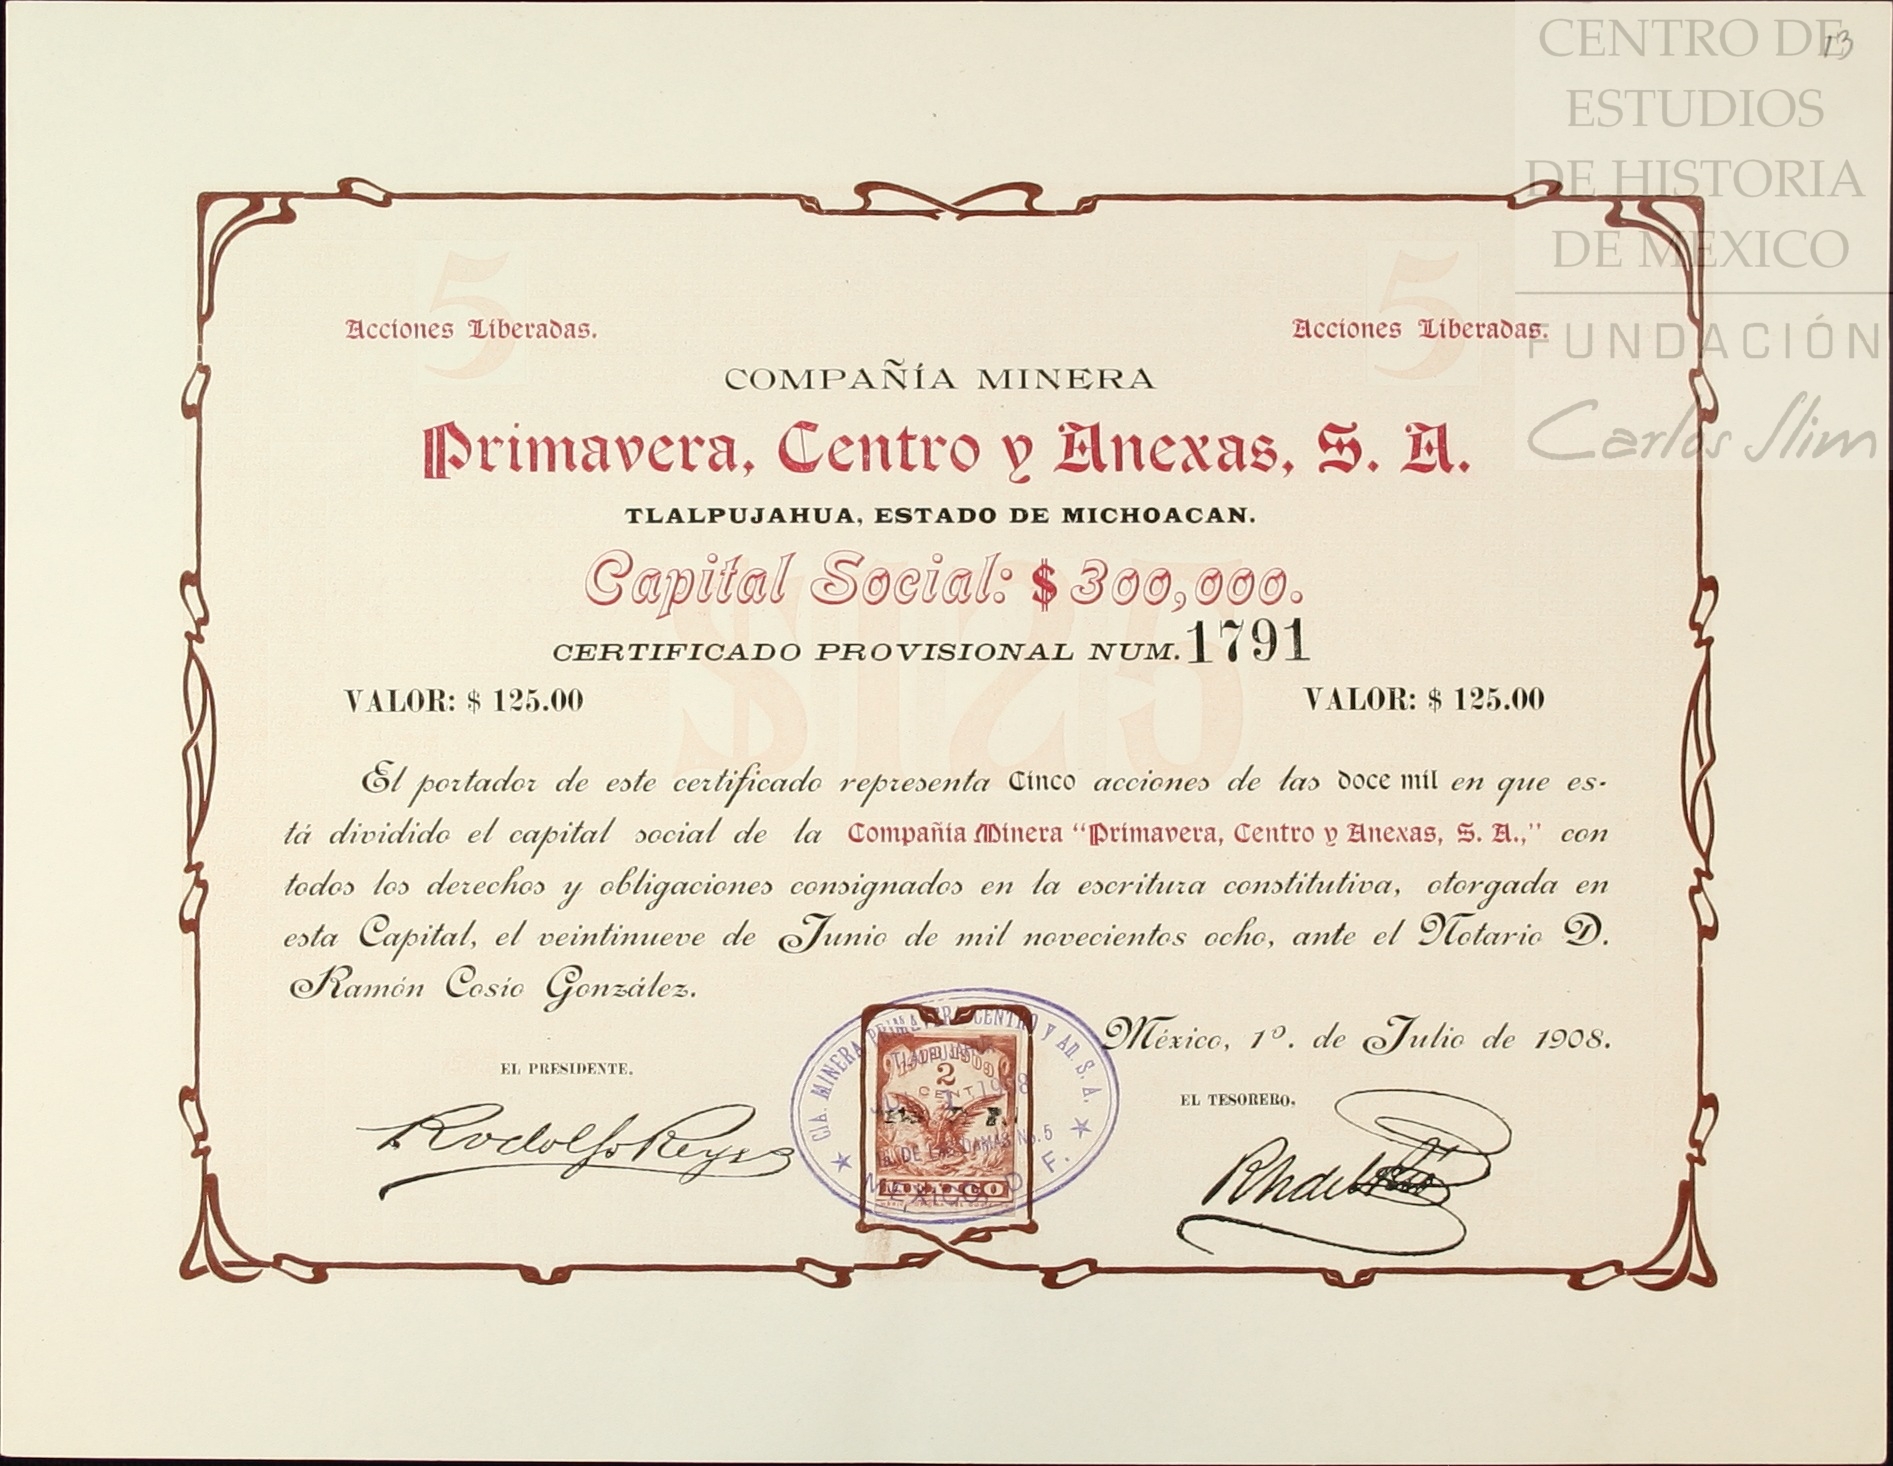 CENTRO DE
13
ESTUDIOS
DE HISTORIA
DE MEXICO
FUNDACIÓN
Carlos Slim
5
5
Acciones Liberadas.
Acciones Liberadas.
COMPAÑÍA MINERA
Primavera, Centro y Anexas, S. A.
TLALPUJAHUA, ESTADO DE MICHOACAN.
Capital Social: $ 300,000.
$125
CERTIFICADO PROVISIONAL NUM. 1791
VALOR: $ 125.00
VALOR: $ 125.00
El portador de este certificado representa Cinco acciones de las doce mil en que es-
tá dividido el capital social de la Compañía Minera “Primavera, Centro y Anexas, S. A.,” con
todos los derechos y obligaciones consignados en la escritura constitutiva, otorgada en
esta Capital, el veintinueve de Junio de mil novecientos ocho, ante el Notario D.
Ramón Cosío González.
México, 1º. de Julio de 1908.
EL PRESIDENTE.
Rodolfo Reyes
EL TESORERO,
CIA. MINERA PRIMAVERA CENTRO Y AN. S. A.
TLALPUJAHUA
2
CENT
1908
DE LAS DAMAS No. 5
MEXICO, D. F.